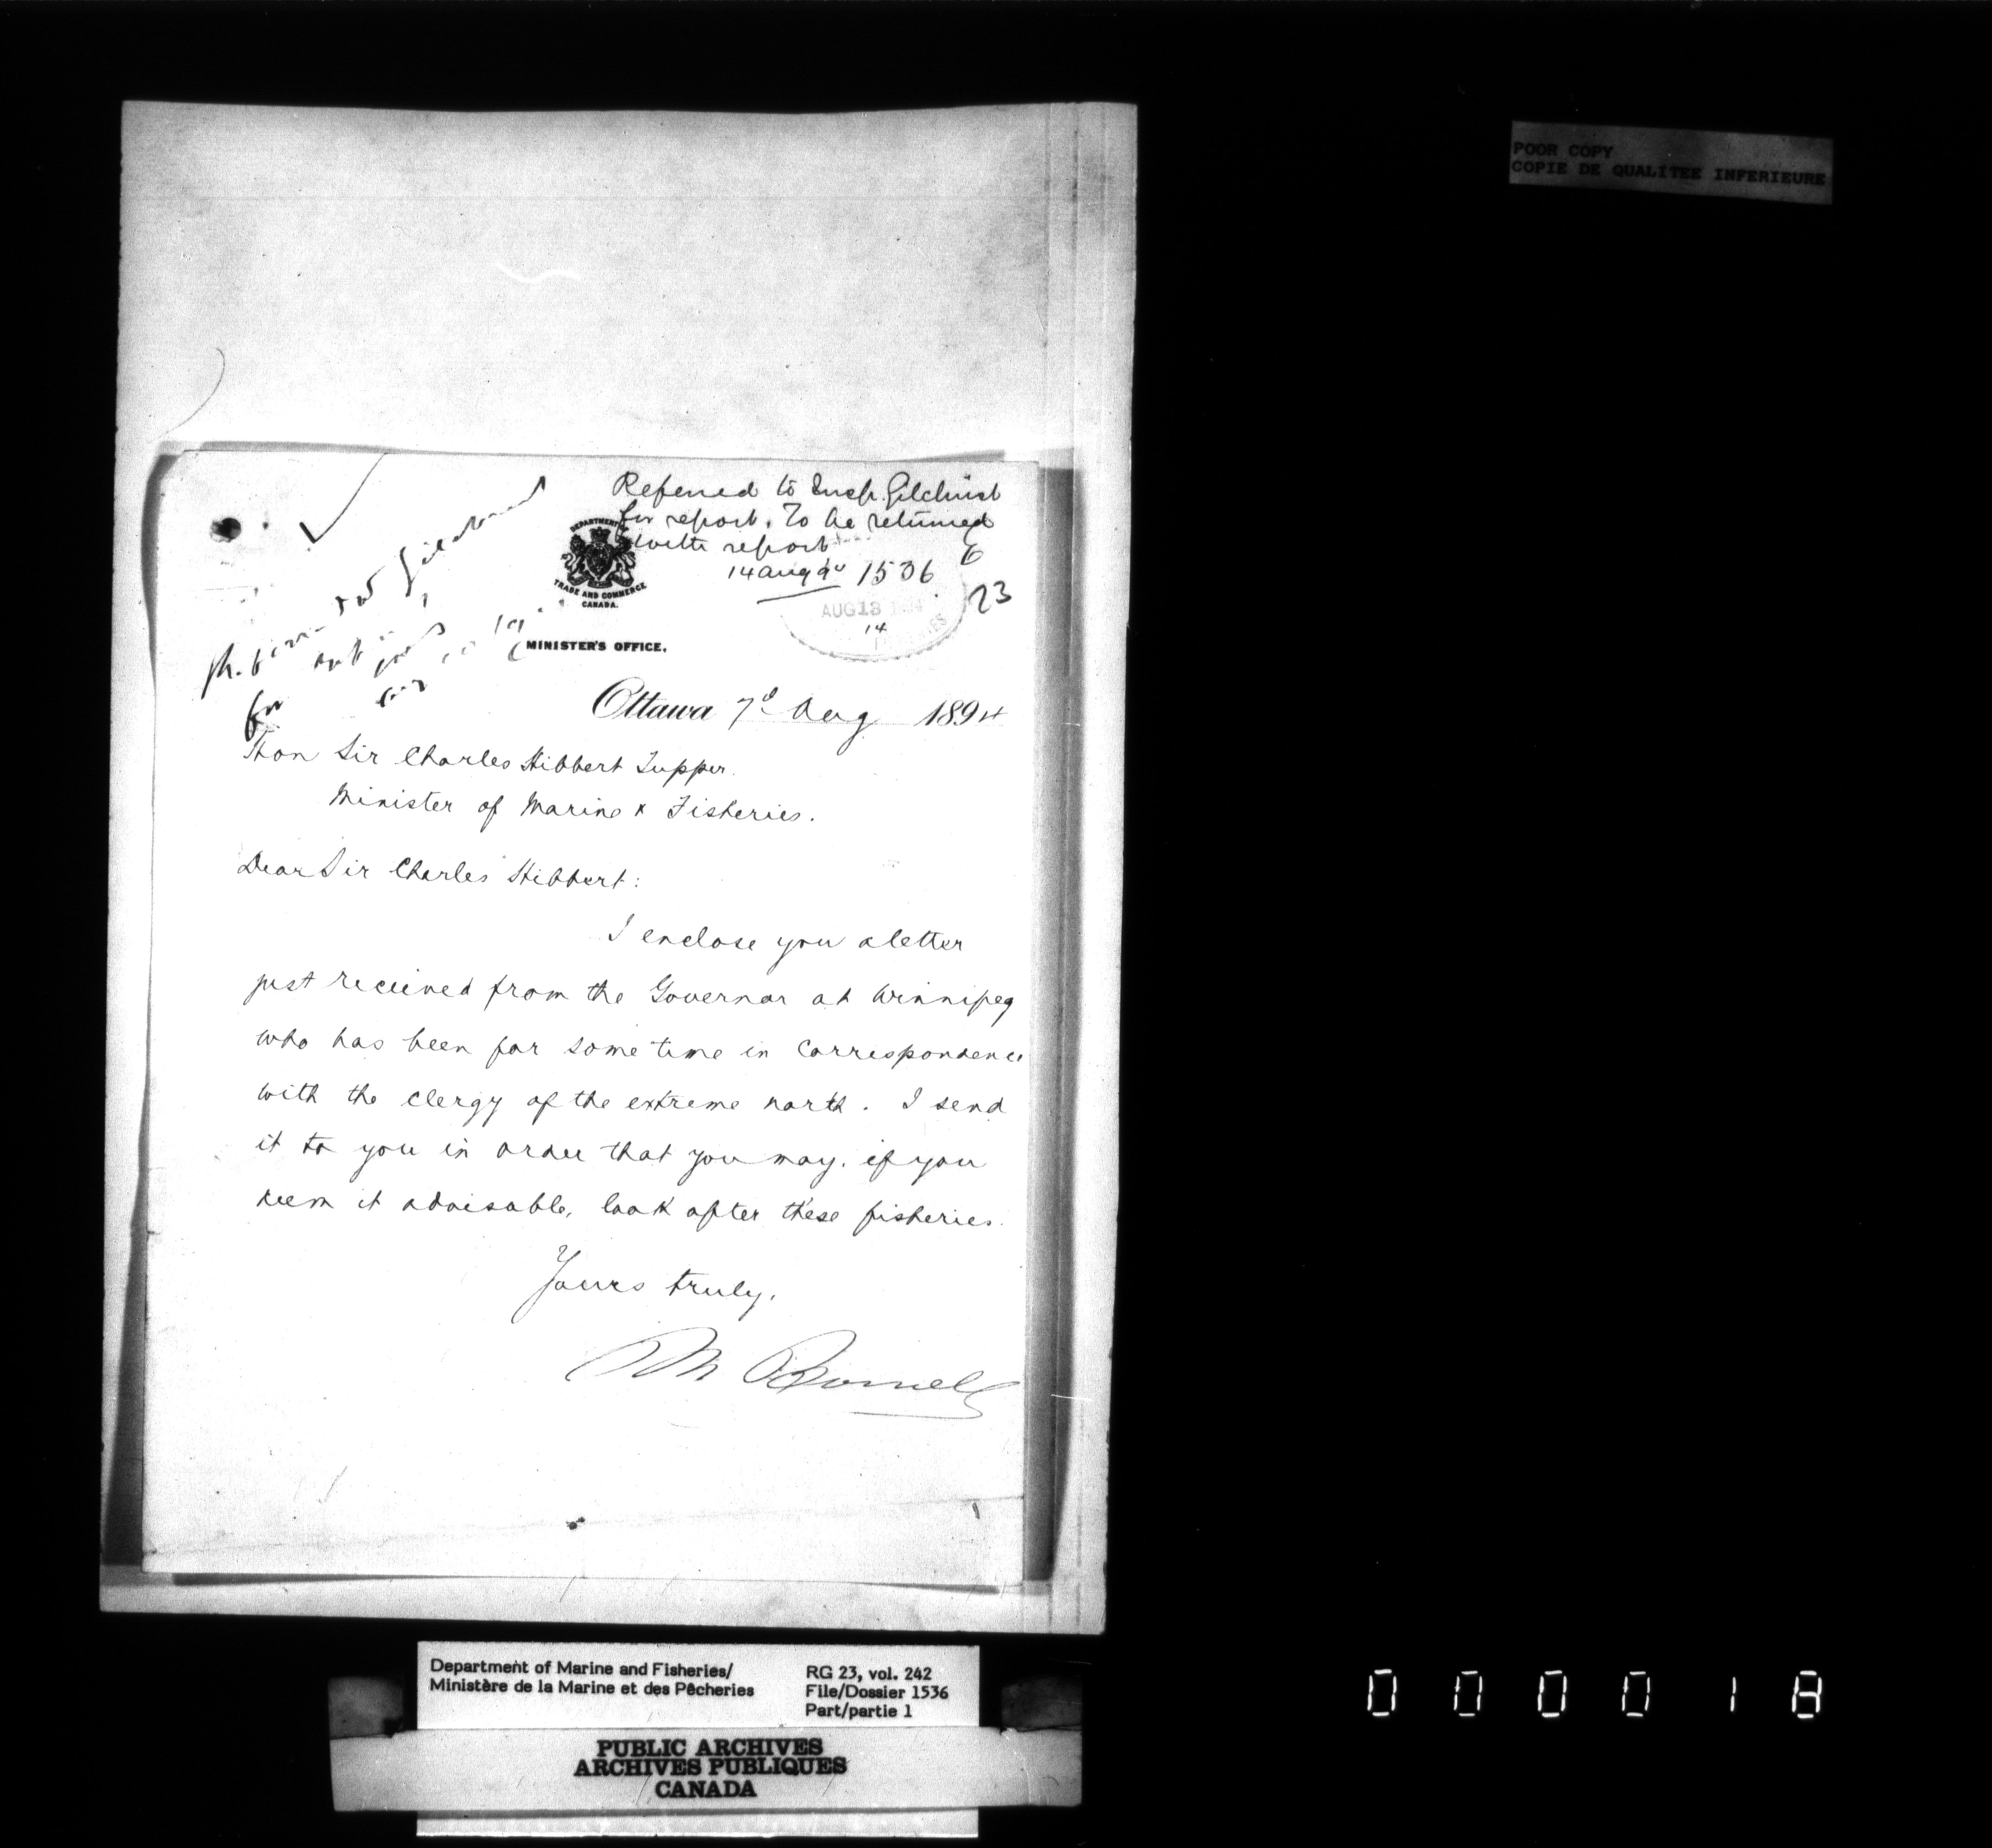 POOR COPY
COPIE DE QUALITEE INFERIEURE
Referred to Insp. Gilchrist
for report. To be returned
with report
14 Aug 94 1536
23
AUG 13
14
DEPARTMENT OF
TRADE AND COMMERCE
CANADA.
MINISTER'S OFFICE.
for
Ottawa 7th Aug 1894
Hon Sir Charles Hibbert Tupper.
Minister of Marine & Fisheries.
Dear Sir Charles Hibbert:
I enclose you a letter
just received from the Governor at Winnipeg
who has been for some time in correspondence
with the clergy of the extreme north. I send
it to you in order that you may, if you
deem it advisable, look after these fisheries.
Yours truly,
M Bowell
Department of Marine and Fisheries/
Ministère de la Marine et des Pêcheries
RG 23, vol. 242
File/Dossier 1536
Part/partie 1
PUBLIC ARCHIVES
ARCHIVES PUBLIQUES
CANADA
000018